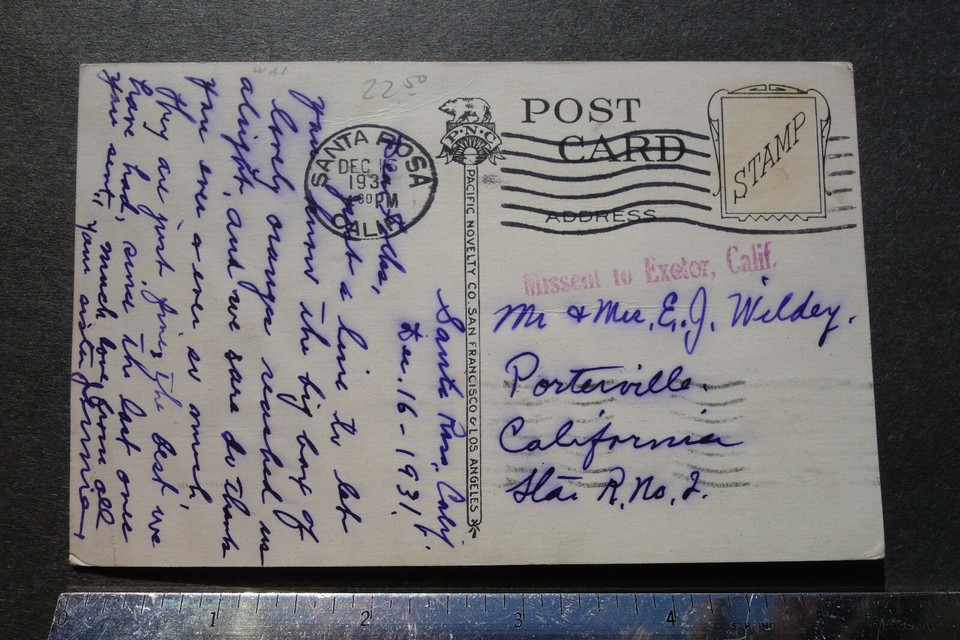 Santa Rosa, Calif.
Dec. 16 - 1931.
Dear folks,
Just a line to let
you know the big box of
lovely oranges reached us
alright, and we sure do thank
you ever & ever so much,
They are just fine, the best we
have had, since the last one
you sent, much love from all
your sister
22.50
SANTA ROSA
DEC 16
193
30 PM
CALIF.
P·N·C
PACIFIC NOVELTY CO. SAN FRANCISCO & LOS ANGELES
POST
CARD
ADDRESS
STAMP
Missent to Exeter, Calif.
Mr & Mrs. E. J. Wildey.
Porterville.
California
Sta. R. No. 2.
0 1 2 3 4 5